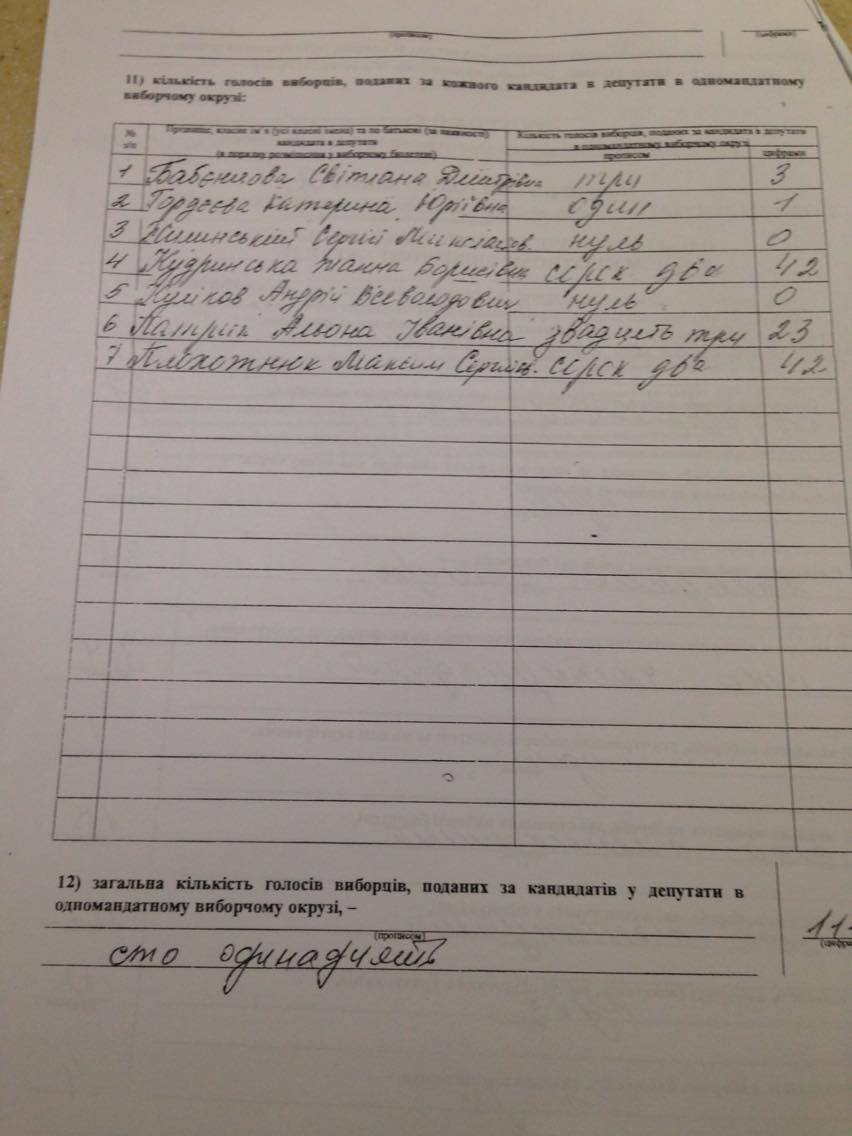 (прописом) (цифрами)
11) кількість голосів виборців, поданих за кожного кандидата в депутати в одномандатному
виборчому окрузі:
№ з/п
Прізвище, власне ім'я (усі власні імена) та по батькові (за наявності)
кандидата в депутати
(в порядку розміщення у виборчому бюлетені)
Кількість голосів виборців, поданих за кандидата в депутати
в одномандатному виборчому окрузі
прописом цифрами
1 Світлана Дмитрівна три 3
2 Гордєєва Катерина Юріївна один 1
3 Сергій нуль 0
4 Кудринська Жанна Борисівна сорок два 42
5 Куліков Андрій Всеволодович нуль 0
6 Альона Іванівна звадцять три 23
7 Максим сорок два 42
12) загальна кількість голосів виборців, поданих за кандидатів у депутати в
одномандатному виборчому окрузі, –
(прописом)
сто одинадцять
11